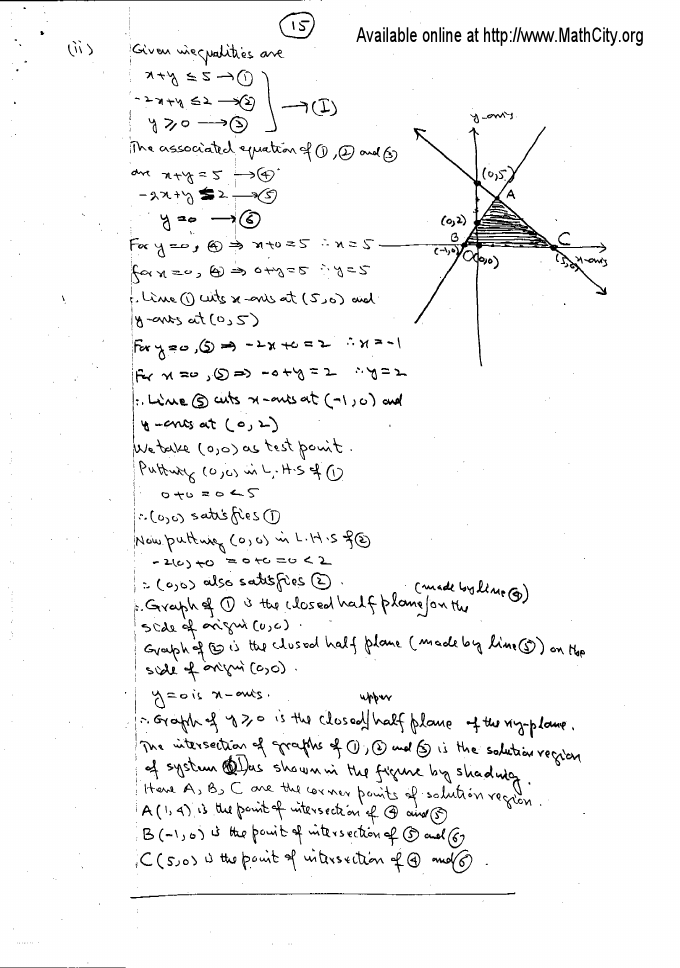 15
Available online at http://www.MathCity.org
(ii) Given inequalities are
x+y ≤ 5 → ①
-2x+y ≤ 2 → ② → (I)
y ≥ 0 → ③
The associated equation of ①, ② and ③
are x+y = 5 → ④
-2x+y = 2 → ⑤
y = 0 → ⑥
For y=0, ④ ⇒ x+0=5 ∴ x=5
for x=0, ④ ⇒ 0+y=5 ∴ y=5
∴ Line ① cuts x-axis at (5,0) and
y-axis at (0,5)
For y=0, ⑤ ⇒ -2x+0=2 ∴ x=-1
For x=0, ⑤ ⇒ -0+y=2 ∴ y=2
∴ Line ⑤ cuts x-axis at (-1,0) and
y-axis at (0,2)
We take (0,0) as test point.
Putting (0,0) in L.H.S of ①
0+0 = 0 < 5
∴ (0,0) satisfies ①
Now putting (0,0) in L.H.S of ②
-2(0)+0 = 0+0 = 0 < 2
∴ (0,0) also satisfies ②.
∴ Graph of ① is the closed half plane (made by line ④) on the
side of origin (0,0).
Graph of ② is the closed half plane (made by line ⑤) on the
side of origin (0,0).
y=0 is x-axis.
∴ Graph of y ≥ 0 is the closed upper half plane of the xy-plane.
The intersection of graphs of ①, ② and ③ is the solution region
of system (I) as shown in the figure by shading.
Here A, B, C are the corner points of solution region.
A(1,4) is the point of intersection of ④ and ⑤
B(-1,0) is the point of intersection of ⑤ and ⑥
C(5,0) is the point of intersection of ④ and ⑥.
y-axis
(0,5)
A
(0,2)
B
C
(-1,0)
O(0,0)
(5,0)
x-axis